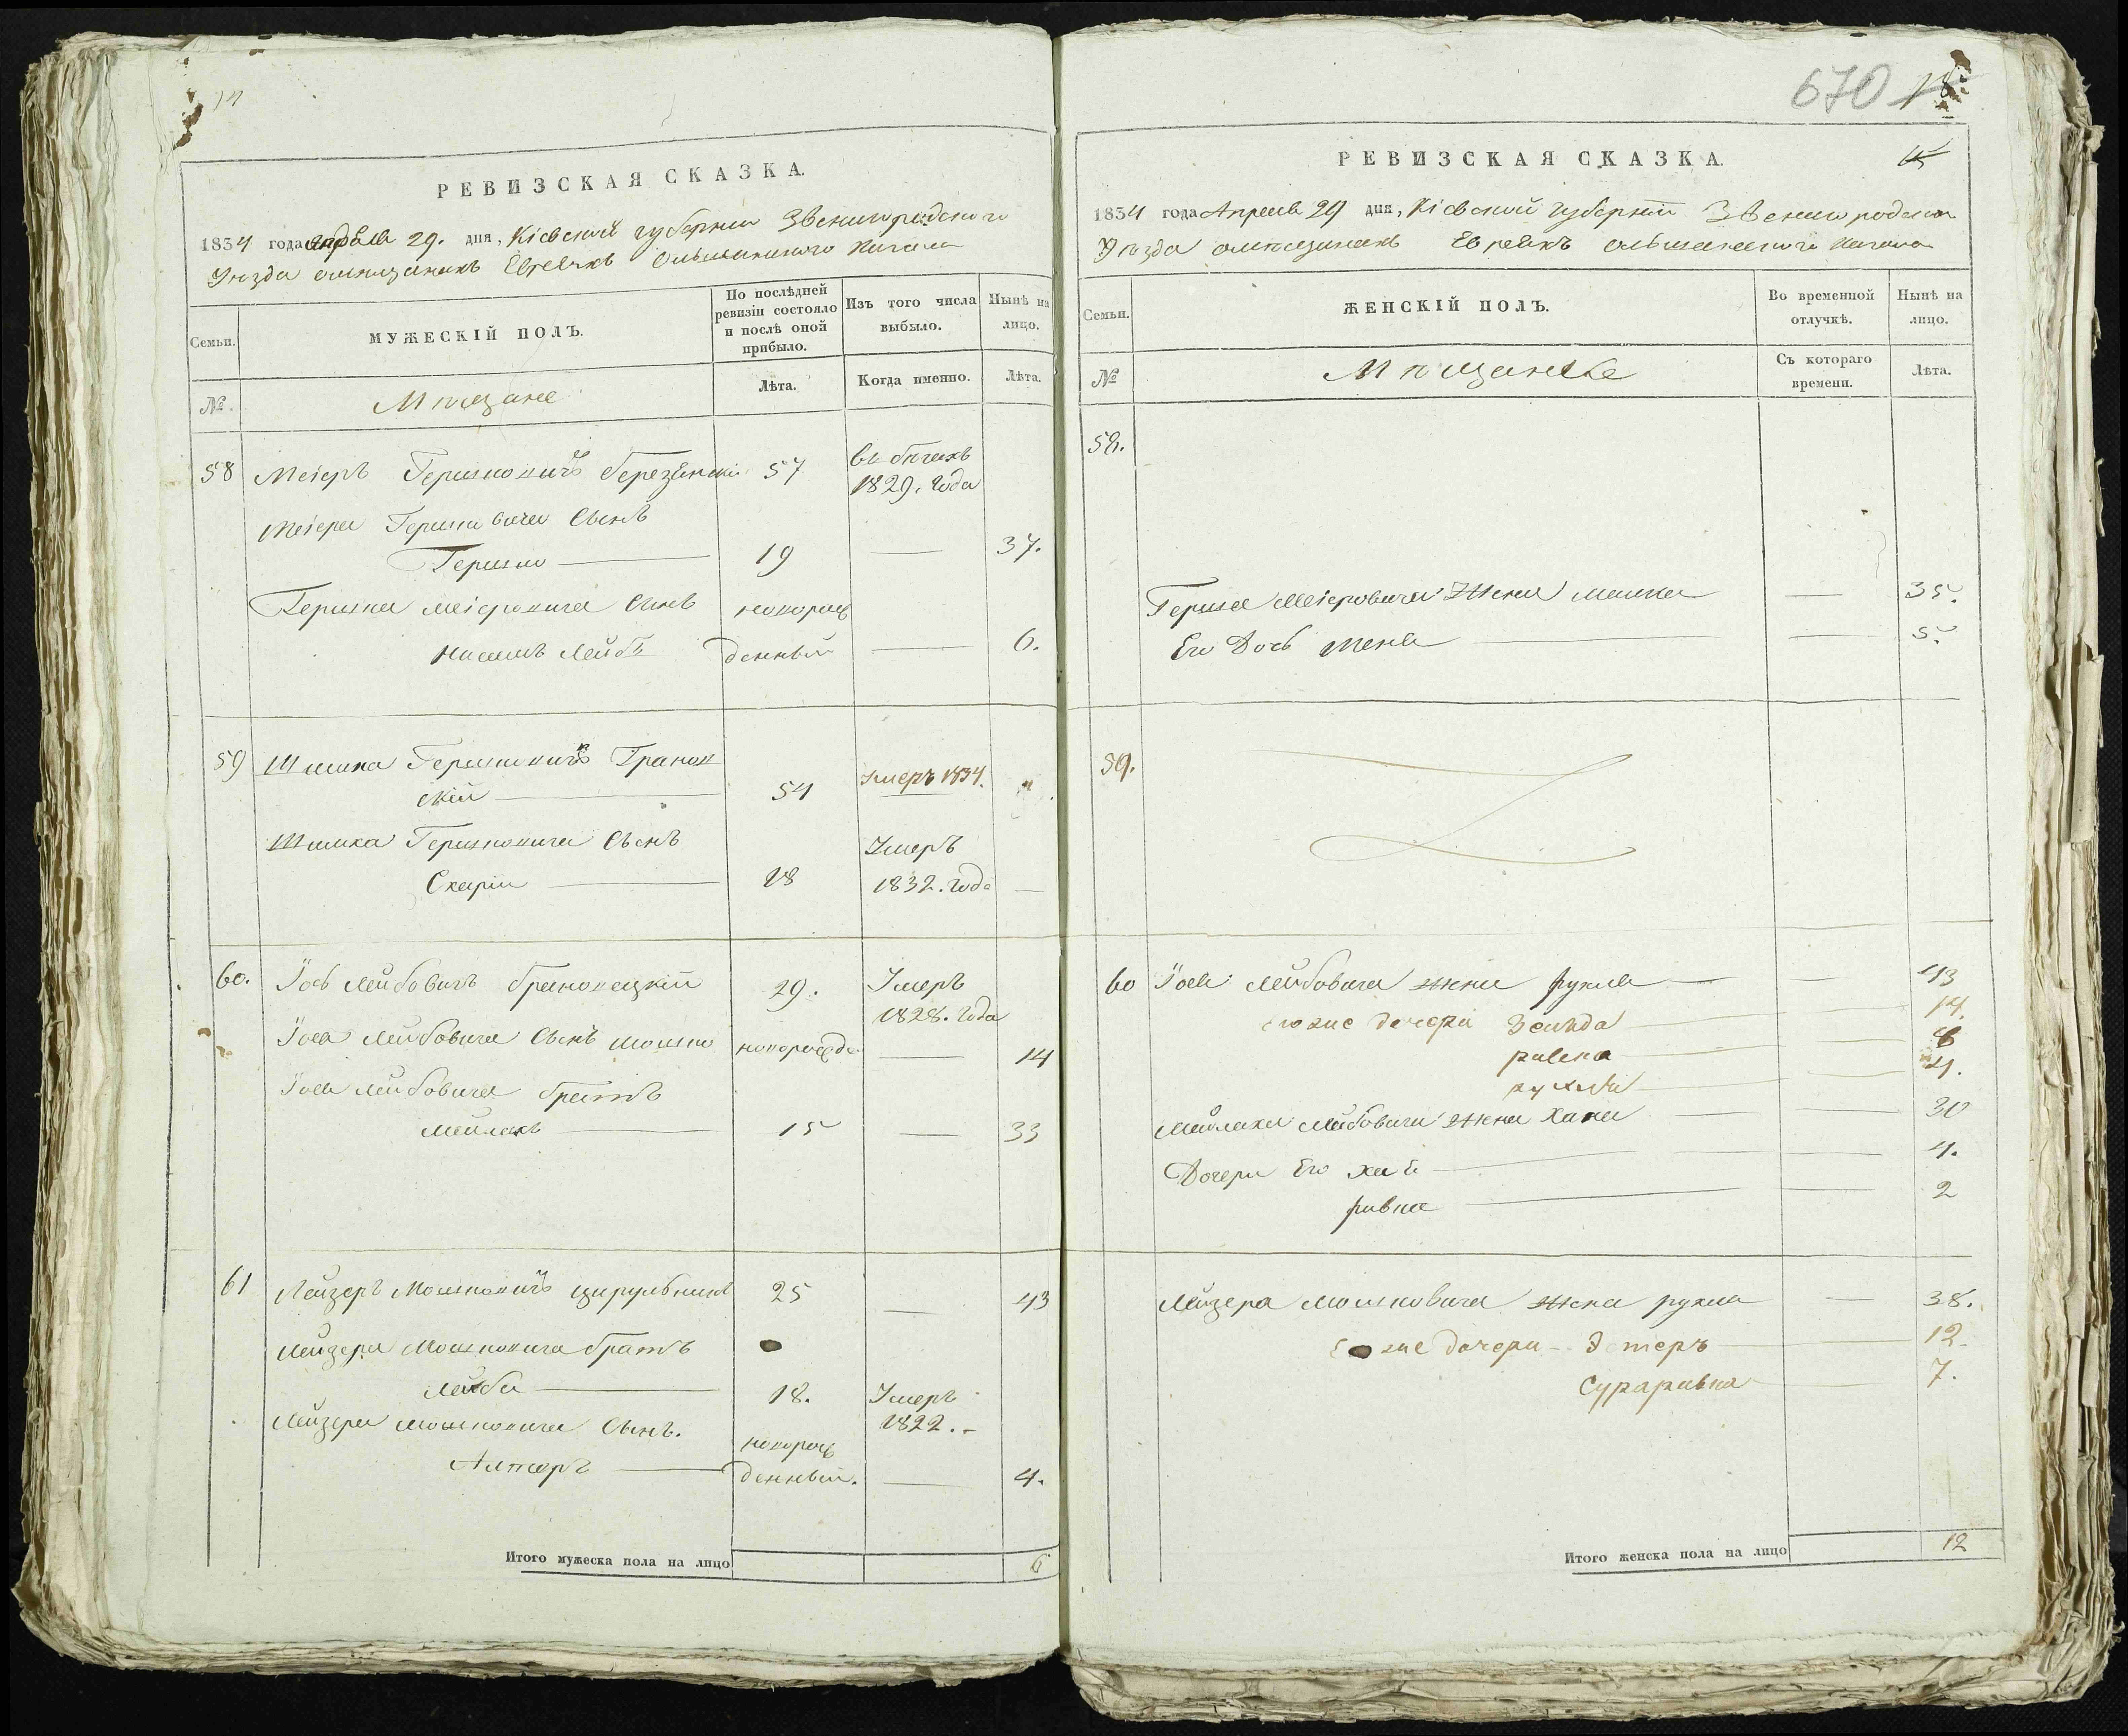 РЕВИЗСКАЯ СКАЗКА.
1834 года апреля 29. дня, Кіевской губерніи Звенигородского
Уезда о мещанахъ Евреяхъ Ольшанского Кагала
Семьи.
МУЖЕСКІЙ ПОЛЪ.
По послѣдней ревизіи состояло и послѣ оной прибыло.
Изъ того числа выбыло.
Нынѣ на лицо.
№.
Мещане
Лѣта.
Когда именно.
Лѣта.
58 Меіеръ Гершковичъ Березинскій 57 въ бегахъ
1829. года
Меіера Гершковича Сынъ
Гершко 19 — 37.
Гершка Меіеровича Сынъ новорож
Лейбъ денный — 6.
59 Шимка Гершковичъ Граков
скій 54 Умеръ 1834.
Шимка Гершковича Сынъ Умеръ
18 1832. года —
60. Іось Лейбовичъ 29. Умеръ
1828. года
Іося Лейбовича Сынъ Мошко новорожде — 14
Іося Лейбовича братъ
Мейлахъ 15 — 33
61 Лейзеръ Мошковичъ Цирульникъ 25 — 43
Лейзера Мошковича братъ
Лейба 18. Умеръ
1822.
Лейзера Мошковича Сынъ. новорож
Алтеръ денный. — 4.
Итого мужеска пола на лицо 6
670 18
15
РЕВИЗСКАЯ СКАЗКА.
1834 года Апреля 29 дня, Кіевской Губерніи Звенигородского
Уезда о мещанахъ Евреяхъ Ольшанского Кагала
Семьи.
ЖЕНСКІЙ ПОЛЪ.
Во временной отлучкѣ.
Нынѣ на лицо.
№
Мещанскі
Съ котораго времени.
Лѣта.
58.
Гершка Меіеровича Жена Малка — 35.
Его Дочь — 5.
59.
60 Іося Лейбовича жена Рухля — 43
его же дочери Зельда — 14.
Ривка — 8
— 4.
Мейлаха Лейбовича жена Хана — 30
Дочери Его Хая — 4.
Ривка — 2
Лейзера Мошковича жена Рухля — 38.
его же дочери — Эстеръ — 12.
Сураривка — 7.
Итого женска пола на лицо 12